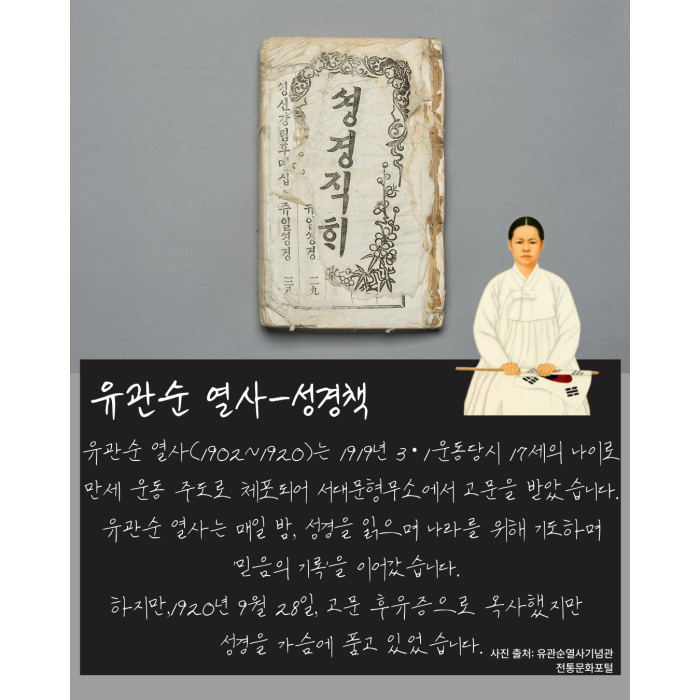 셩경직희
유관순 열사-성경책
유관순 열사(1902~1920)는 1919년 3•1운동당시 17세의 나이로
만세 운동 주도로 체포되어 서대문형무소에서 고문을 받았습니다.
유관순 열사는 매일 밤, 성경을 읽으며 나라를 위해 기도하며
'믿음의 기록'을 이어갔습니다.
하지만,1920년 9월 28일, 고문 후유증으로 옥사했지만
성경을 가슴에 품고 있었습니다.
사진 출처: 유관순열사기념관
전통문화포털